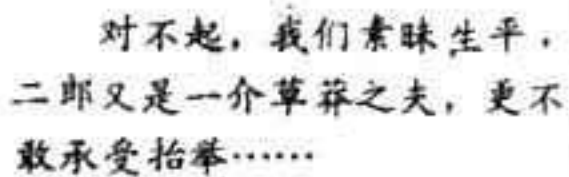 对不起，我们素昧生平，
二郎又是一介草莽之夫，更不
敢承受抬举……